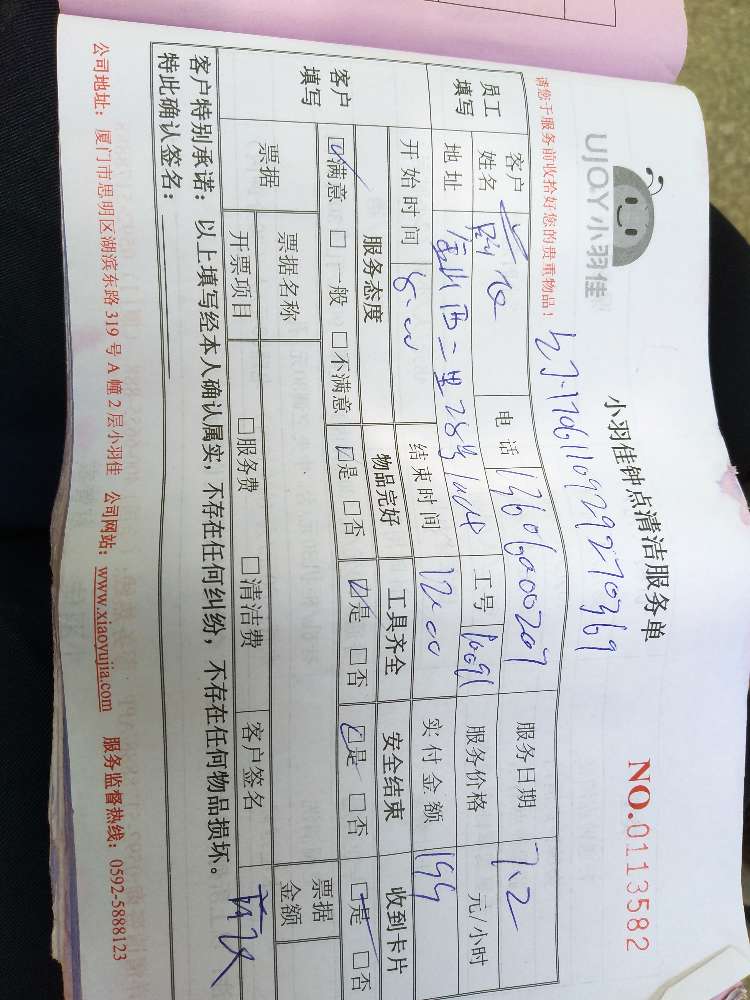 UJOY小羽佳
小羽佳钟点清洁服务单
NO.0113582
请您于服务前收拾好您的贵重物品!
员工填写
客户姓名
电话 13606000207
服务日期 7.2
地址 金山西二里28号1004
工号
服务价格 元/小时
开始时间 8:00
结束时间 12:00
实付金额 199
客户填写
服务态度 物品完好 工具齐全 安全结束 收到卡片
☑满意 □一般 □不满意 ☑是 □否 ☑是 □否 ☑是 □否 ☑是 □否
票据 票据名称 票据金额
开票项目 □服务费 □清洁费 客户签名
客户特别承诺:以上填写经本人确认属实,不存在任何纠纷,不存在任何物品损坏。
特此确认签名:
公司地址:厦门市思明区湖滨东路319号A幢2层小羽佳 公司网站:www.xiaoyujia.com 服务监督热线:0592-5888123